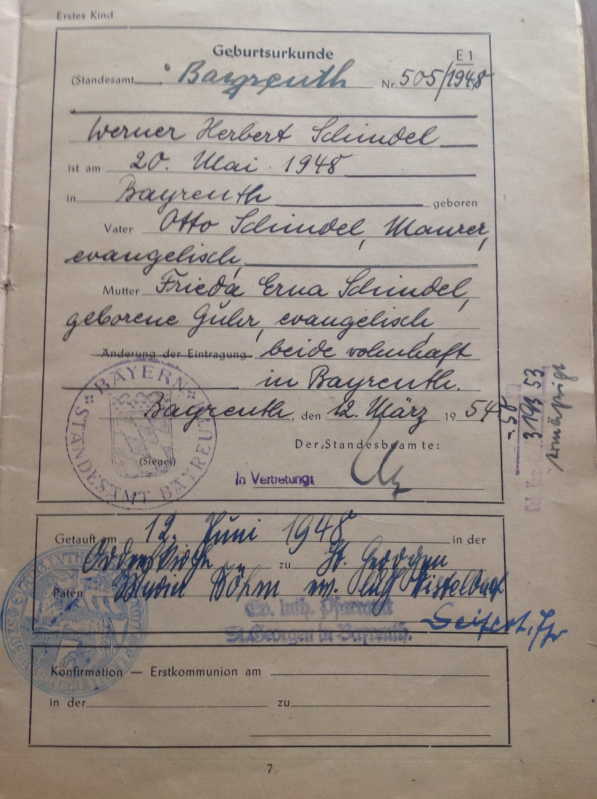 Erstes Kind
Geburtsurkunde
E 1
(Standesamt Bayreuth Nr. 505/1948
Werner Herbert Schindel
ist am 20. Mai 1948
in Bayreuth geboren
Vater Otto Schindel, Maurer,
evangelisch,
Mutter Frieda Erna Schindel,
geborene Guhr, evangelisch,
Änderung der Eintragung beide wohnhaft
in Bayreuth.
Bayreuth, den 12. März 1954
Der Standesbeamte:
(Siegel)
In Vertretung:
BAYERN
STANDESAMT BAYREUTH
319353
Getauft am 12. Juni 1948 in der
Ordenskirche zu St. Georgen
Paten
Böhm
Ev. luth. Pfarramt
St. Georgen in Bayreuth.
Konfirmation — Erstkommunion am
in der zu
7